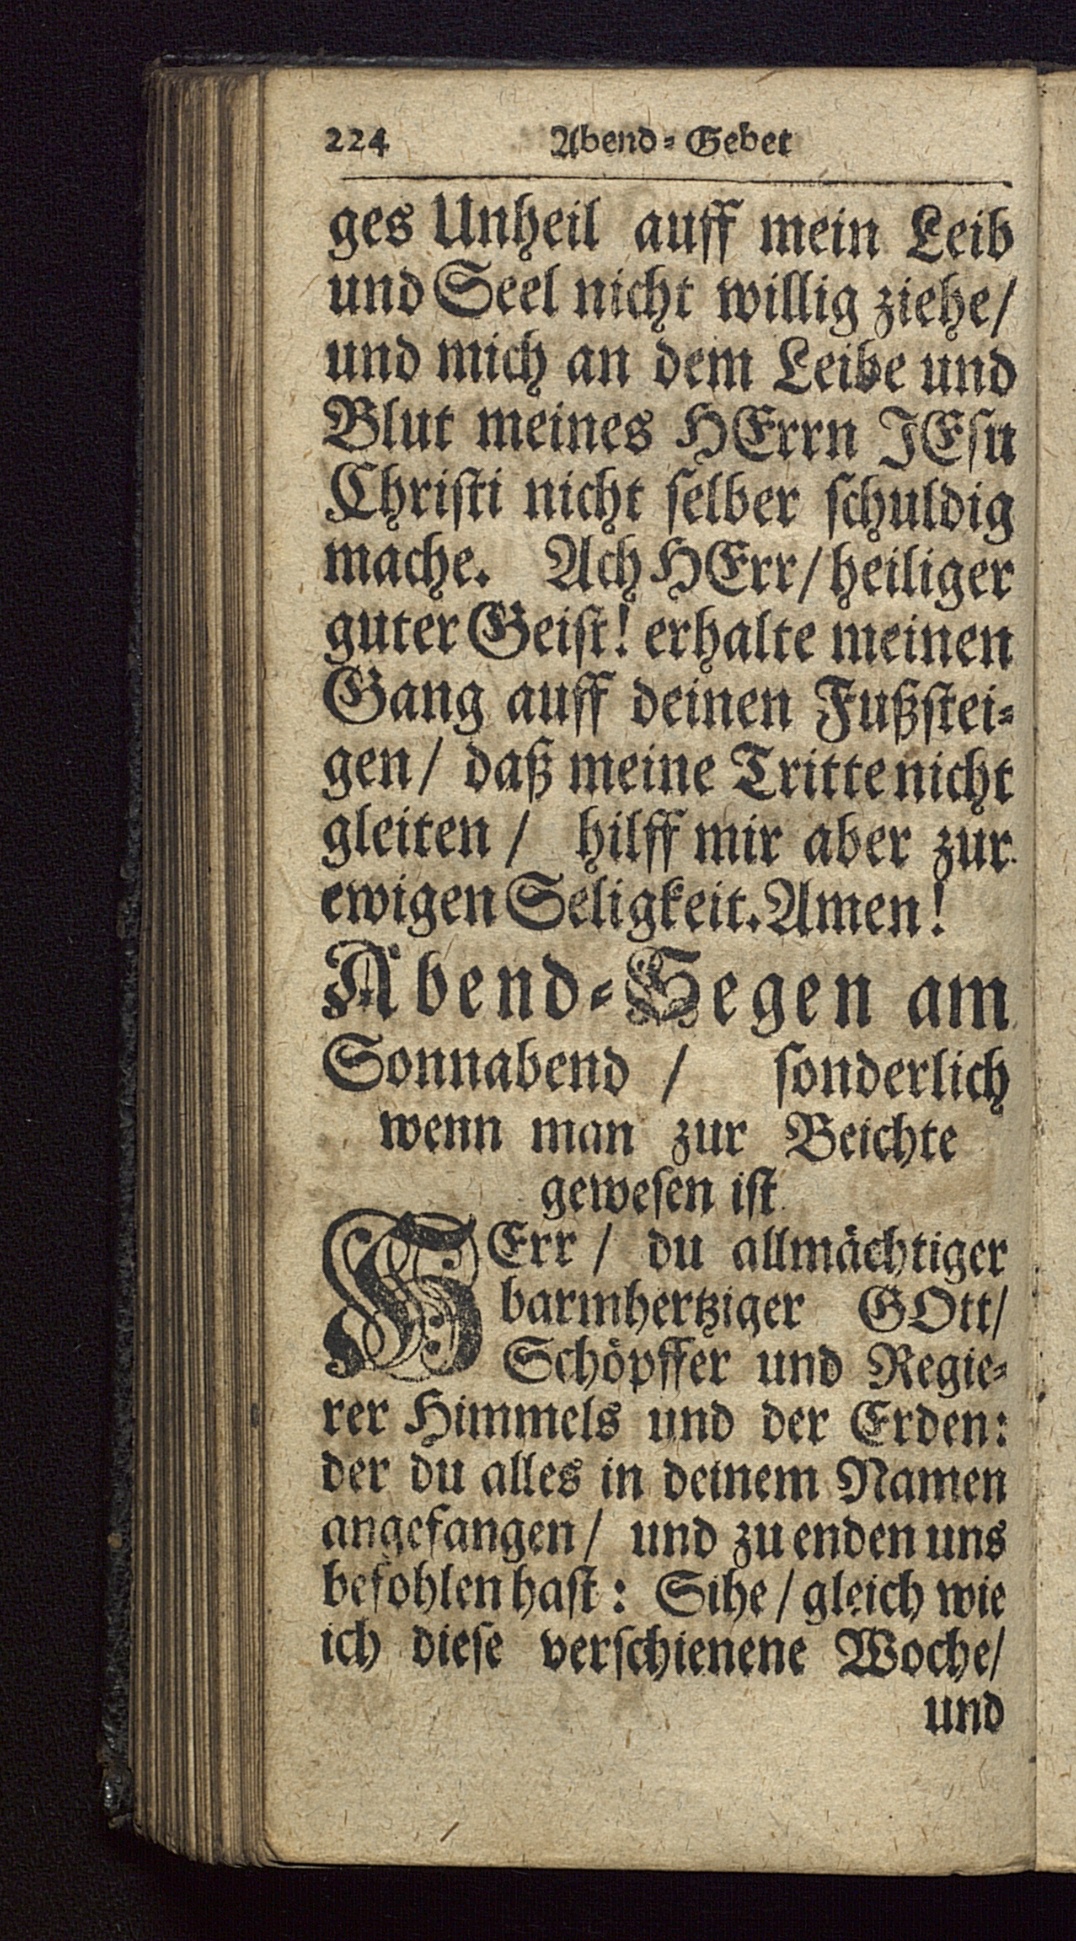 224 Abend-Gebet
ges Unheil auff mein Leib
und Seel nicht willig ziehe/
und mich an dem Leibe und
Blut meines HErrn JEsu
Christi nicht selber schuldig
mache. Ach HErr/ heiliger
guter Geist! erhalte meinen
Gang auff deinen Fußstei-
gen/ daß meine Tritte nicht
gleiten / hilff mir aber zur
ewigen Seligkeit. Amen!
Abend-Segen am
Sonnabend / sonderlich
wenn man zur Beichte
gewesen ist
HErr / du allmächtiger
barmhertziger GOtt/
Schöpffer und Regie-
rer Himmels und der Erden:
der du alles in deinem Namen
angefangen/ und zu enden uns
befohlen hast: Sihe / gleich wie
ich diese verschienene Woche/
und